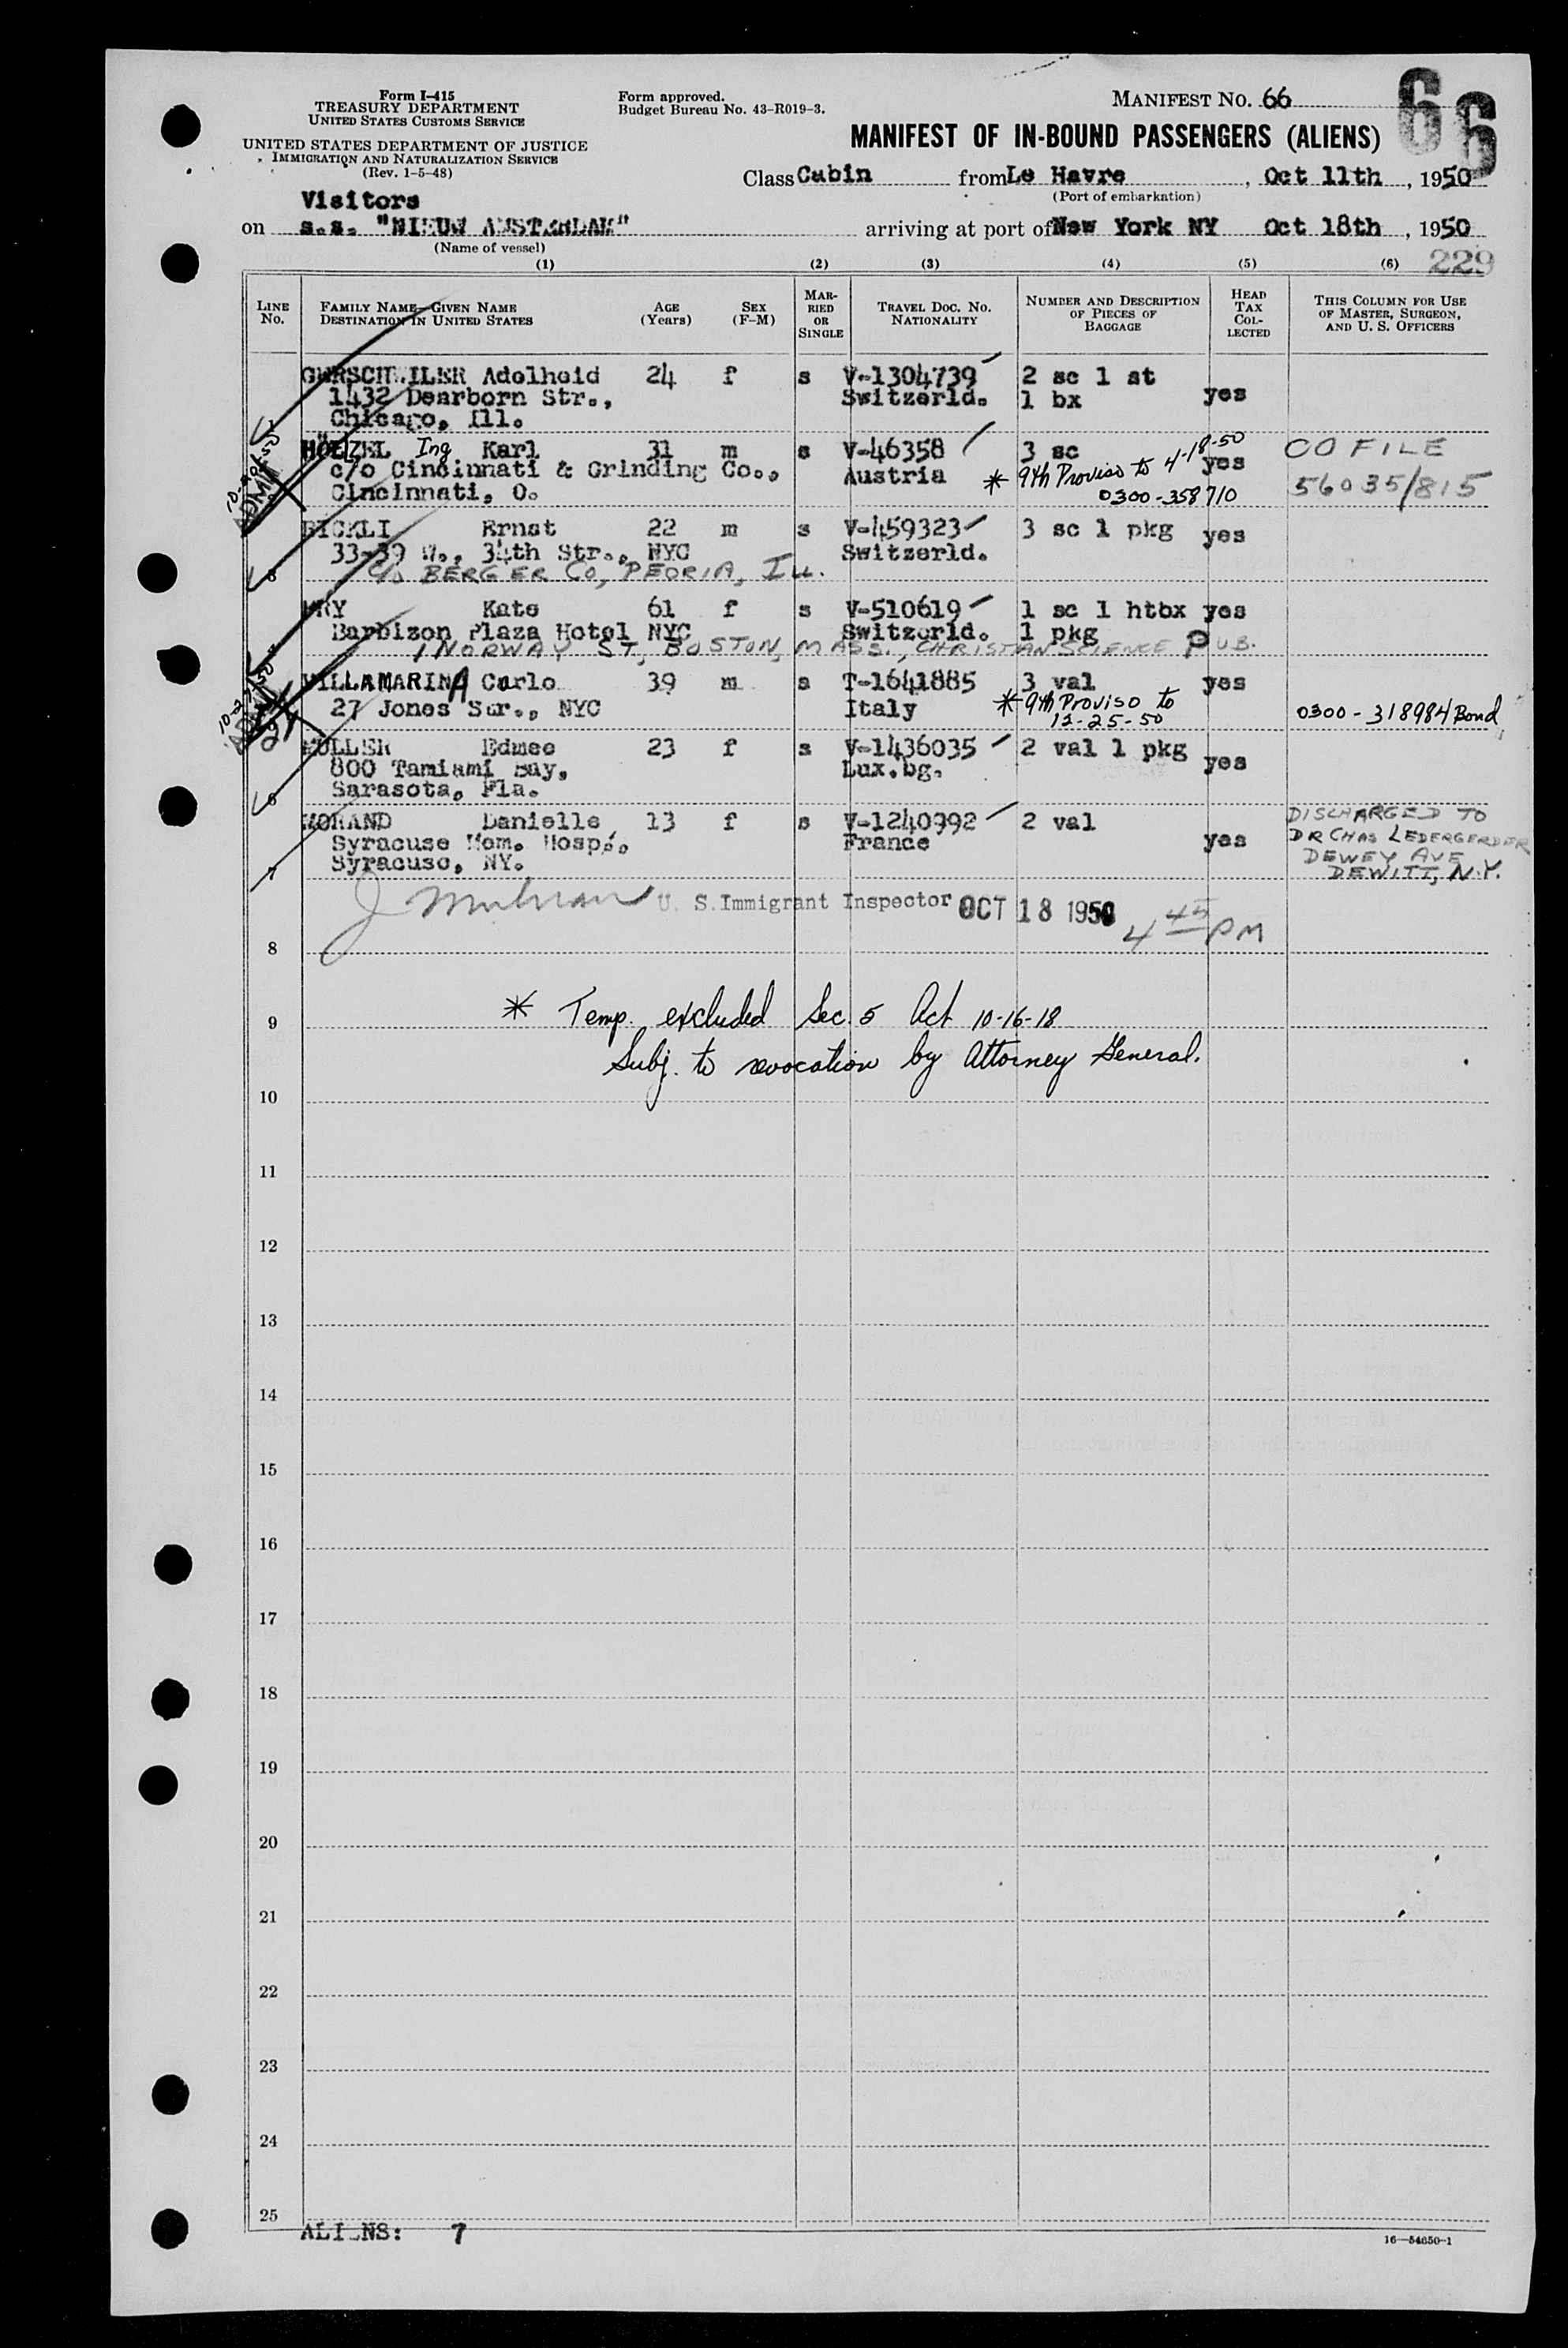 Form I-415
TREASURY DEPARTMENT
UNITED STATES CUSTOMS SERVICE
UNITED STATES DEPARTMENT OF JUSTICE
IMMIGRATION AND NATURALIZATION SERVICE
(Rev. 1-5-48)
Form approved.
Budget Bureau No. 43-R019-3.
MANIFEST NO. 66
66
MANIFEST OF IN-BOUND PASSENGERS (ALIENS)
Class Cabin from Le Havre, Oct 11th, 1950
(Port of embarkation)
Visitors
on s.s. "NIEUW AMSTERDAM" arriving at port of New York NY Oct 18th, 1950
(Name of vessel)
229
(1) (2) (3) (4) (5) (6)
LINE NO. FAMILY NAME—GIVEN NAME DESTINATION IN UNITED STATES AGE (Years) SEX (F-M) MARRIED OR SINGLE TRAVEL DOC. NO. NATIONALITY NUMBER AND DESCRIPTION OF PIECES OF BAGGAGE HEAD TAX COLLECTED THIS COLUMN FOR USE OF MASTER, SURGEON, AND U. S. OFFICERS
GERSCHWILER Adelheid 24 f s V-1304739 2 sc 1 st
1432 Dearborn Str., Switzerld. 1 bx yes
Chicago, Ill.
HÖLZEL Ing Karl 31 m s V-46358 3 sc yes CO FILE
c/o Cincinnati & Grinding Co., Austria * 9th Proviso to 4-18-50 56035/815
Cincinnati, O. 0300-358710
BICKLI Ernst 22 m s V-459323 3 sc 1 pkg yes
33-39 W., 34th Str., NYC Switzerld.
c/o BERGER CO, PEORIA, ILL.
Kate 61 f s V-510619 1 sc 1 htbx yes
Barbizon Plaza Hotel NYC Switzerld. 1 pkg
1 NORWAY ST, BOSTON, MASS., CHRISTIAN SCIENCE PUB.
VILLAMARINA Carlo 39 m s T-1641885 3 val yes
27 Jones Str., NYC Italy * 9th Proviso to 12-25-50 0300-318984 Bond
Edmee 23 f s V-1436035 2 val 1 pkg yes
800 Tamiami Bay, Lux.bg.
Sarasota, Fla.
6
MORAND Danielle, 13 f s V-1240992 2 val yes DISCHARGED TO
Syracuse Mem. Hosp., France DR CHAS LEDERGERDER
Syracuse, NY. DEWEY AVE
7 DEWITT, N.Y.
U. S. Immigrant Inspector OCT 18 1950 4 45 PM
8
9 * Temp. excluded Sec. 5 Act 10-16-18
Subj. to revocation by Attorney General.
10
11
12
13
14
15
16
17
18
19
20
21
22
23
24
25
ALIENS: 7
16—54650-1